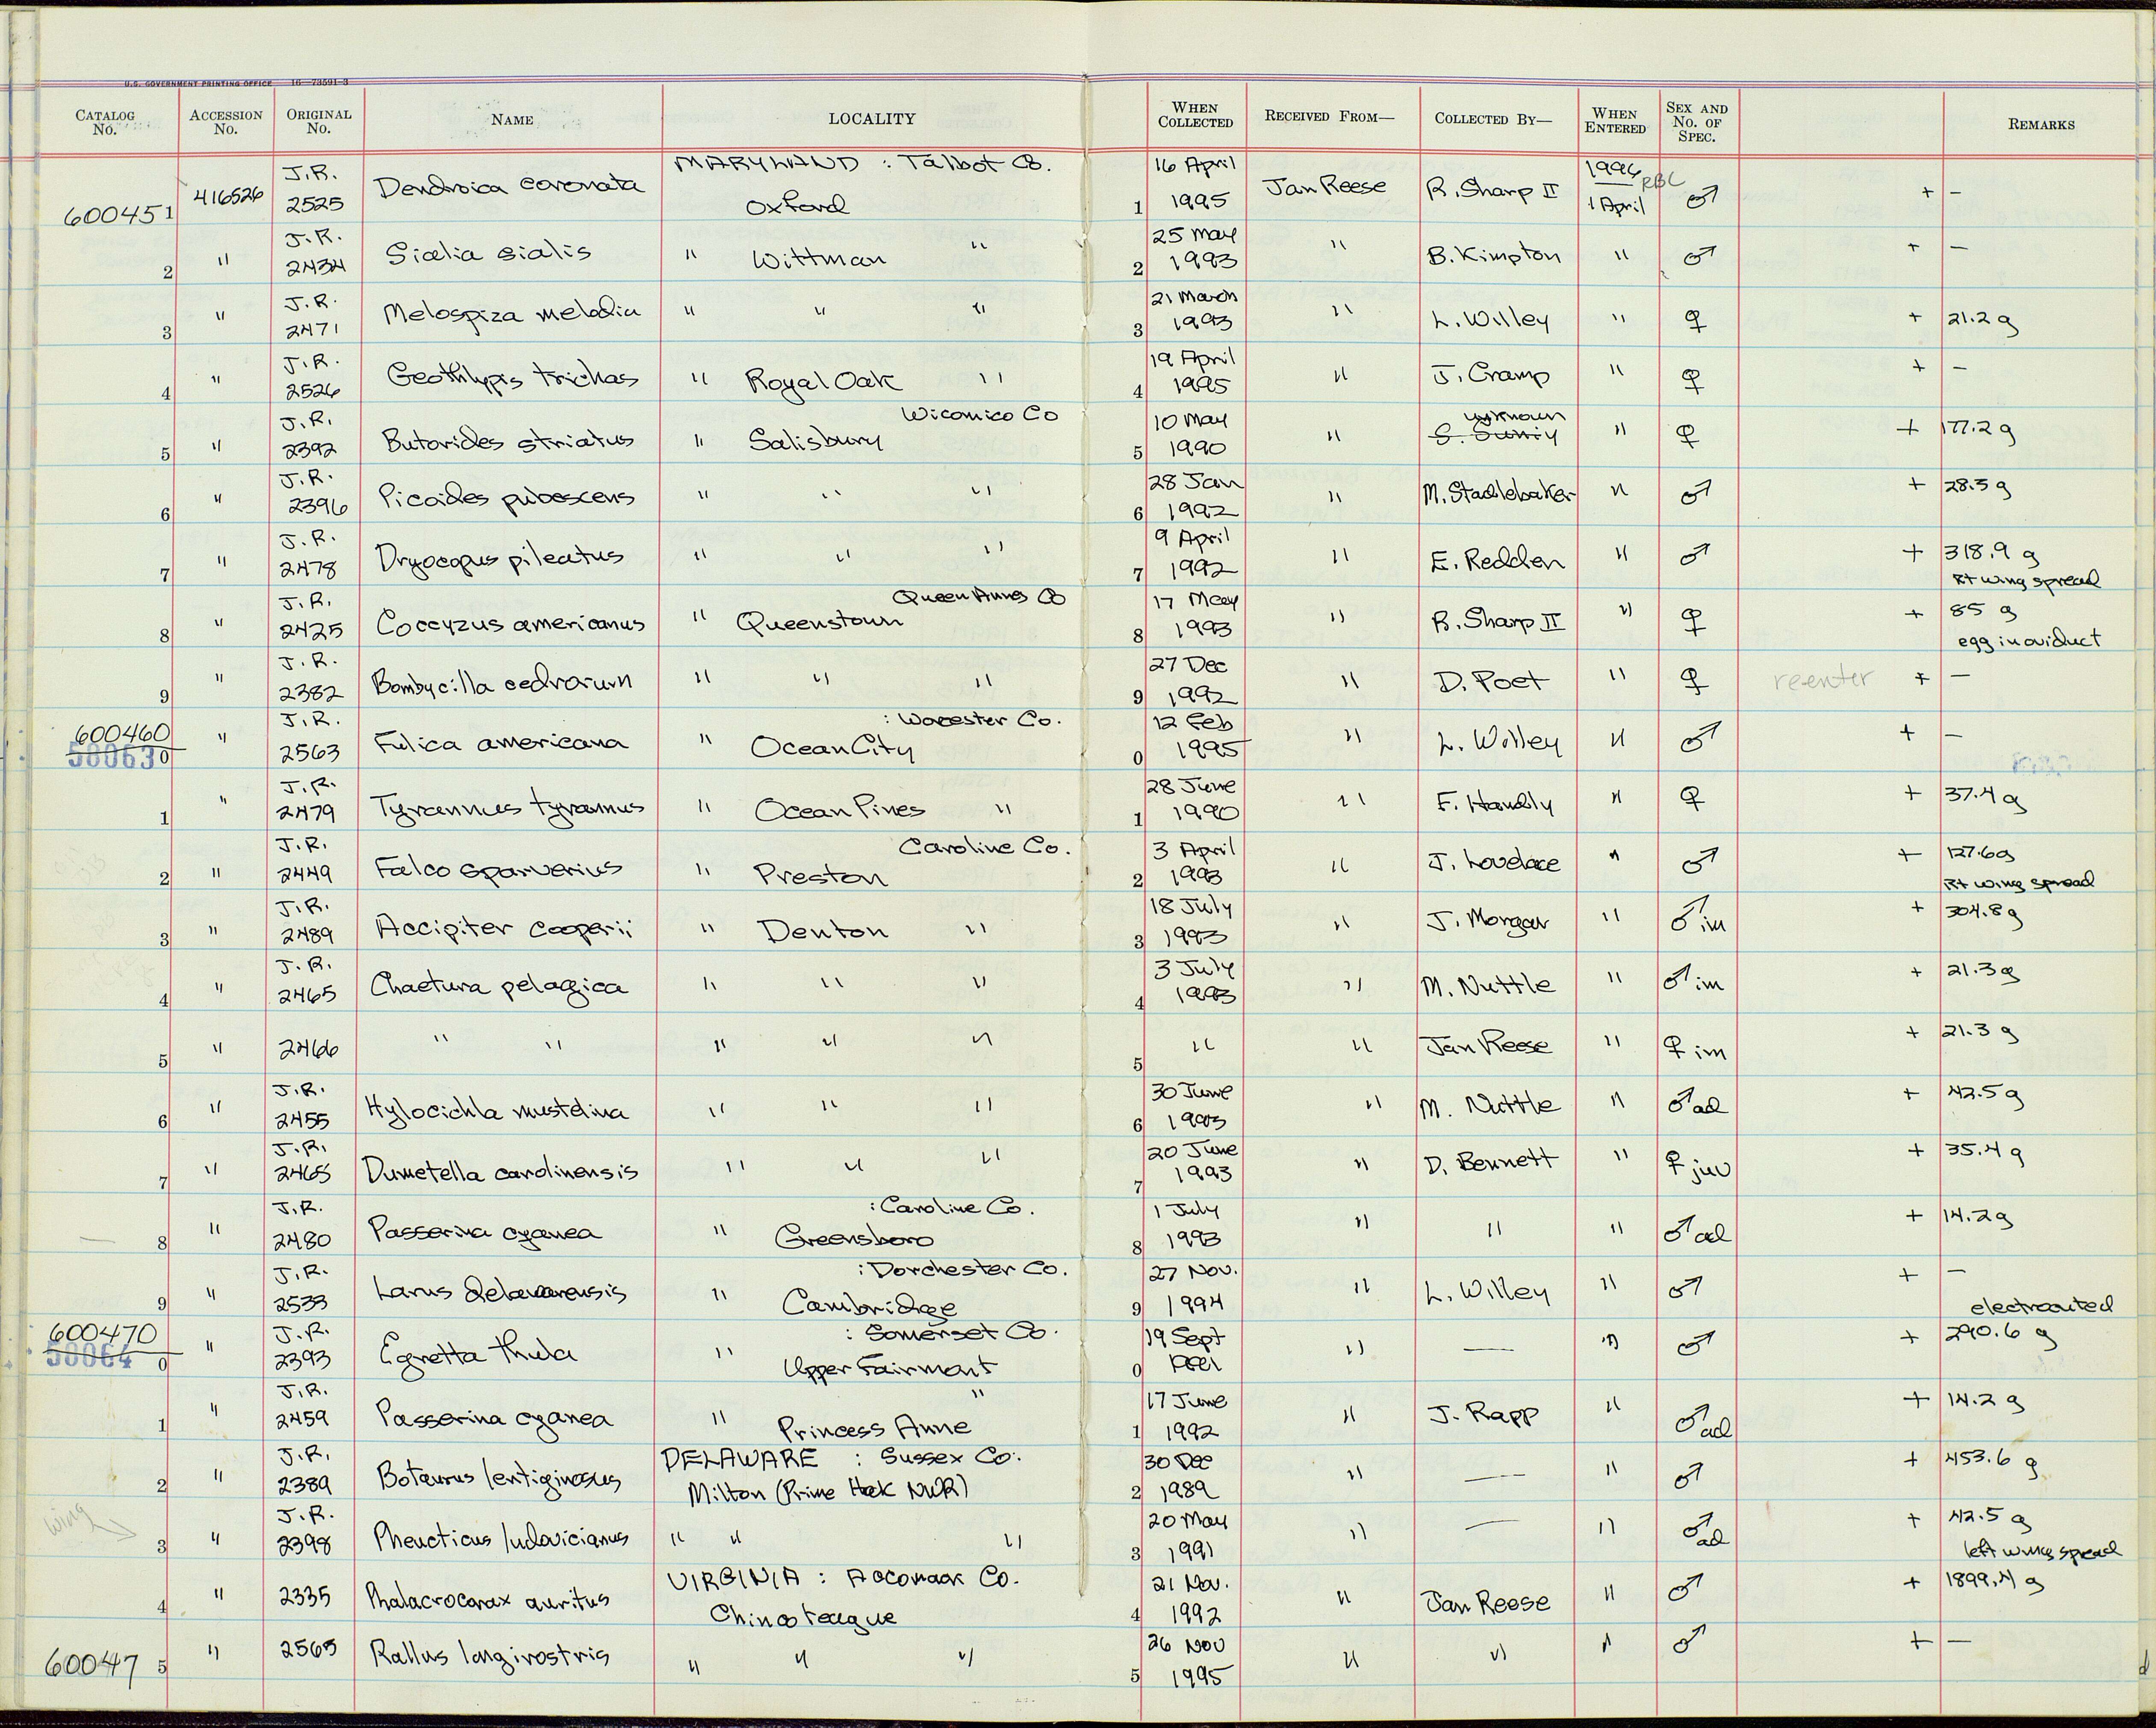 U.S. GOVERNMENT PRINTING OFFICE 16—73591-3
CATALOG No. ACCESSION No. ORIGINAL No. NAME LOCALITY WHEN COLLECTED RECEIVED FROM— COLLECTED BY— WHEN ENTERED SEX AND No. OF SPEC. REMARKS
J.R. MARYLAND : Talbot Co. 16 April 1996 RBC
600451 416526 2525 Dendroica coronata Oxford 1 1995 Jan Reese R. Sharp II 1 April ♂ + —
J.R. 25 May
2 " 2434 Sialia sialis " Wittman " 2 1993 " B. Kimpton " ♂ + —
J.R. 21 March
3 " 2471 Melospiza melodia " " " 3 1993 " L. Willey " ♀ + 21.2 g
J.R. 19 April
4 " 2526 Geothlypis trichas " Royal Oak " 4 1995 " J. Cramp " ♀ + —
J.R. Wicomico Co 10 May unknown
5 " 2392 Butorides striatus " Salisbury 5 1990 " " ♀ + 177.2 g
J.R. 28 Jan
6 " 2396 Picoides pubescens " " " 6 1992 " M. Stadlebaker " ♂ + 28.3 g
J.R. 9 April
7 " 2478 Dryocopus pileatus " " " 7 1992 " E. Redden " ♂ + 318.9 g
Rt wing spread
J.R. Queen Annes Co 17 May
8 " 2425 Coccyzus americanus " Queenstown 8 1993 " R. Sharp II " ♀ + 85 g
egg in oviduct
J.R. 27 Dec
9 " 2382 Bombycilla cedrorum " " " 9 1992 " D. Poet " ♀ reenter + —
600460 J.R. : Worcester Co. 12 Feb
50063 0 " 2563 Fulica americana " Ocean City 0 1995 " L. Willey " ♂ + —
J.R. 28 June
1 " 2479 Tyrannus tyrannus " Ocean Pines " 1 1990 " F. Handly " ♀ + 37.4 g
J.R. Caroline Co. 3 April
2 " 2449 Falco sparverius " Preston 2 1993 " J. Lovelace " ♂ + 127.6g
Rt wing spread
J.R. 18 July
3 " 2489 Accipiter cooperii " Denton " 3 1993 " J. Morgan " ♂ im + 304.8g
J.R. 3 July
4 " 2465 Chaetura pelagica " " " 4 1993 " M. Nuttle " ♂ im + 21.3 g
5 " 2466 " " " " " 5 " " Jan Reese " ♀ im + 21.3 g
J.R. 30 June
6 " 2455 Hylocichla mustelina " " " 6 1993 " M. Nuttle " ♂ ad + 42.5 g
J.R. 20 June
7 " 2465 Dumetella carolinensis " " " 7 1993 " D. Bennett " ♀ juv + 35.4 g
J.R. : Caroline Co. 1 July
8 " 2480 Passerina cyanea " Greensboro 8 1993 " " " ♂ ad + 14.2 g
J.R. : Dorchester Co. 27 Nov.
9 " 2533 Larus delawarensis " Cambridge 9 1994 " L. Willey " ♂ + —
electrocuted
600470 J.R. : Somerset Co. 19 Sept
50064 0 " 2393 Egretta thula " Upper Fairmont 0 " — " ♂ + 290.6 g
J.R. " 17 June
1 " 2459 Passerina cyanea " Princess Anne 1 1992 " J. Rapp " ♂ ad + 14.2 g
J.R. DELAWARE : Sussex Co. 30 Dec
2 " 2389 Botaurus lentiginosus Milton (Prime Hook NWR) 2 1989 " — " ♂ + 453.6 g
wing J.R. 20 May
3 " 2398 Pheucticus ludovicianus " " " 3 1991 " — " ♂ ad + 42.5 g
left wing spread
VIRGINIA : Accomack Co. 21 Nov.
4 " 2335 Phalacrocorax auritus Chincoteague 4 1992 " Jan Reese " ♂ + 1899.4 g
26 Nov
600475 " 2565 Rallus longirostris " " " 5 1995 " " " ♂ + —